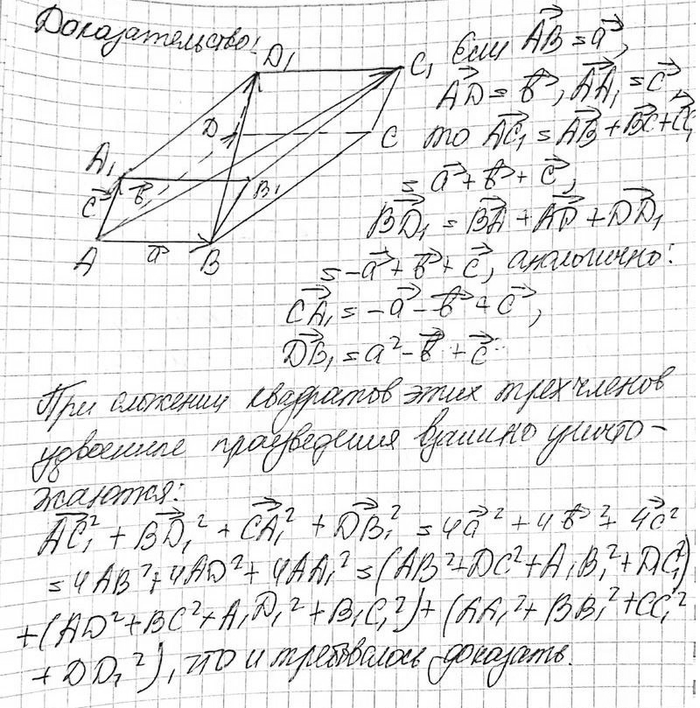 Доказательство:
D₁
C₁
Если A͞B⃗ = a⃗,
AD⃗ = b⃗, AA₁⃗ = c⃗
D
C
то AC₁⃗ = AB⃗ + BC⃗ + CC₁⃗
A₁
c⃗
b⃗
B₁
= a⃗ + b⃗ + c⃗,
BD₁⃗ = BA⃗ + AD⃗ + DD₁⃗
A
a⃗
B
= -a⃗ + b⃗ + c⃗, аналогично:
CA₁⃗ = -a⃗ - b⃗ + c⃗,
DB₁⃗ = a⃗ - b⃗ + c⃗
При сложении квадратов этих трехчленов
удвоенные произведения взаимно уничто-
жаются:
AC₁⃗² + BD₁⃗² + CA₁⃗² + DB₁⃗² = 4a⃗² + 4b⃗² + 4c⃗²
= 4AB² + 4AD² + 4AA₁² = (AB² + DC² + A₁B₁² + D₁C₁²)
+ (AD² + BC² + A₁D₁² + B₁C₁²) + (AA₁² + BB₁² + CC₁²
+ DD₁²), что и требовалось доказать.